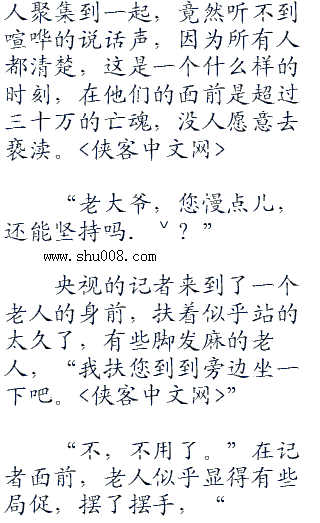 人聚集到一起，竟然听不到
喧哗的说话声，因为所有人
都清楚，这是一个什么样的
时刻，在他们的面前是超过
三十万的亡魂，没人愿意去
亵渎。<侠客中文网>
“老大爷，您漫点儿，
还能坚持吗. ˇ？”
www.shu008.com
央视的记者来到了一个
老人的身前，扶着似乎站的
太久了，有些脚发麻的老
人，“我扶您到到旁边坐一
下吧。<侠客中文网>”
“不，不用了。”在记
者面前，老人似乎显得有些
局促，摆了摆手，“